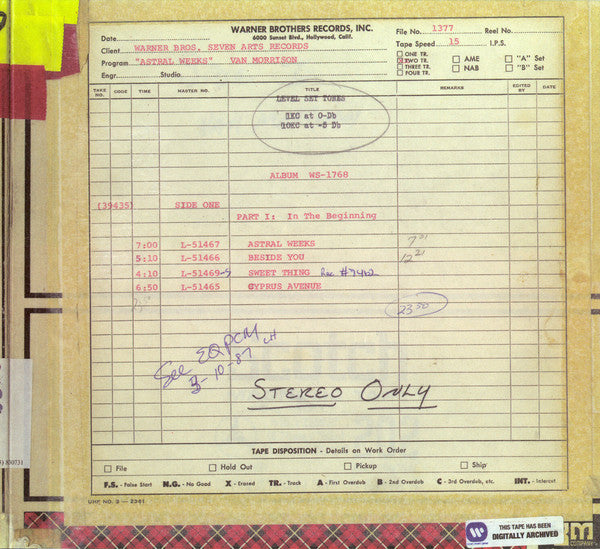 WARNER BROTHERS RECORDS, INC.
6000 Sunset Blvd., Hollywood, Calif.
Date
File No. 1377 Reel No.
Client WARNER BROS. SEVEN ARTS RECORDS
Tape Speed 15 I.P.S.
Program "ASTRAL WEEKS" VAN MORRISON
Engr. Studio
ONE TR.
TWO TR.
THREE TR.
FOUR TR.
AME
NAB
"A" Set
"B" Set
TAKE NO. CODE TIME MASTER NO. TITLE REMARKS EDITED BY DATE
LEVEL SET TONES
1KC at 0-Db
10KC at -5 Db
ALBUM WS-1768
(39435) SIDE ONE
PART I: In The Beginning
7:00 L-51467 ASTRAL WEEKS 7 01
5:10 L-51466 BESIDE YOU 12 21
4:10 L-51469-S SWEET THING Rec #7462
6:50 L-51465 CYPRUS AVENUE
23 50
See EQ PCM LH
3-10-87
STEREO ONLY
TAPE DISPOSITION - Details on Work Order
File Hold Out Pickup Ship
F.S. - False Start N.G. - No Good X - Erased TR. - Track A - First Overdub B - 2nd Overdub C - 3rd Overdub, etc. INT. - Intercut
THIS TAPE HAS BEEN
DIGITALLY ARCHIVED
3M
COMPANY